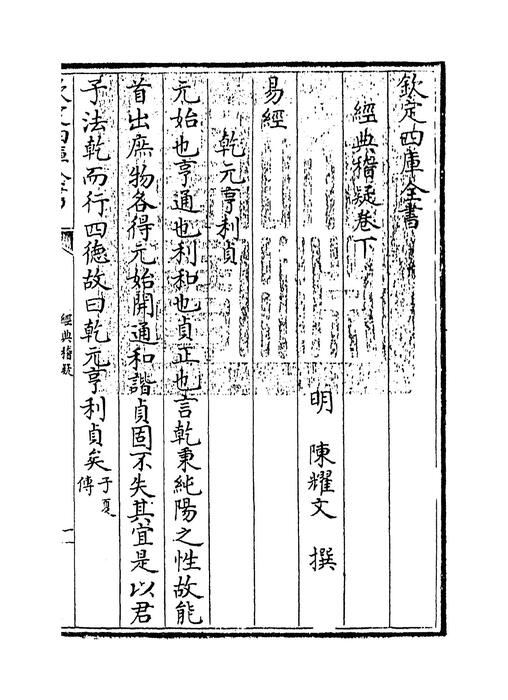 欽定四庫全書
經典稽疑卷下
明　陳耀文　撰
易經
乾元亨利貞
元始也亨通也利和也貞正也言乾秉純陽之性故能
首出庶物各得元始開通和諧貞固不失其宜是以君
子法乾而行四德故曰乾元亨利貞矣子夏
傳
經典稽疑